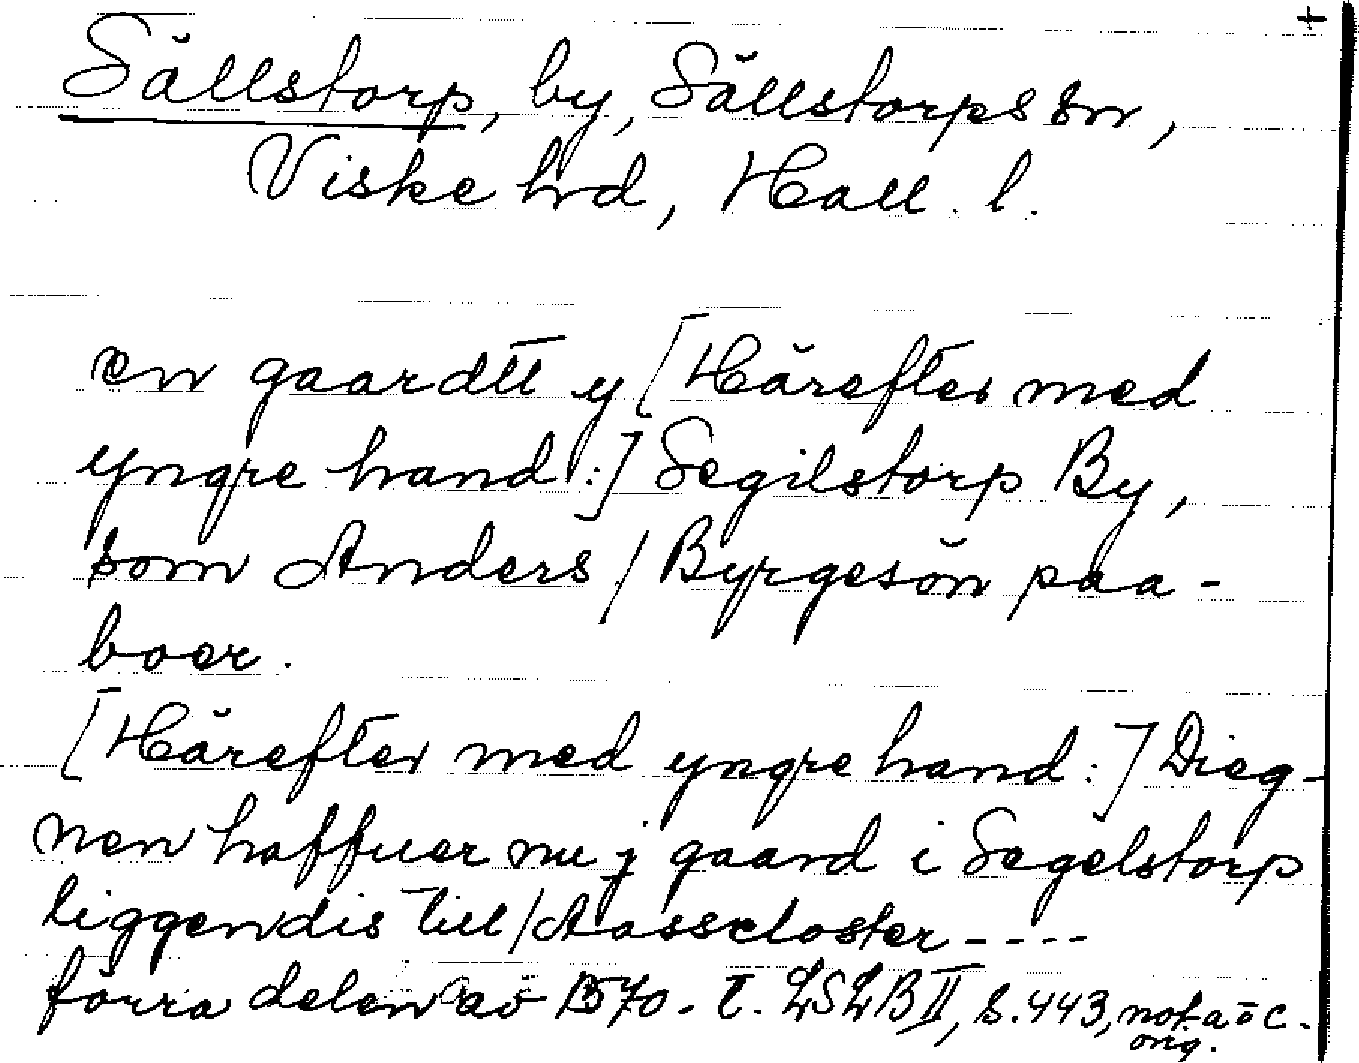 +
Sällstorp, by, Sällstorps sn,
Viske hrd, Hall. l.
en gaardtt y [Härefter med
yngre hand:] Segilstorp By,
som Anders / Byrgesön paa-
boer.
[Härefter med yngre hand:] Dieg-
nen haffuer nu j gaard i Segelstorp
liggendis till / Aasscloster - - - -
förra delen av 1570-t. LSLB II, s. 443, not a o c.
orig.